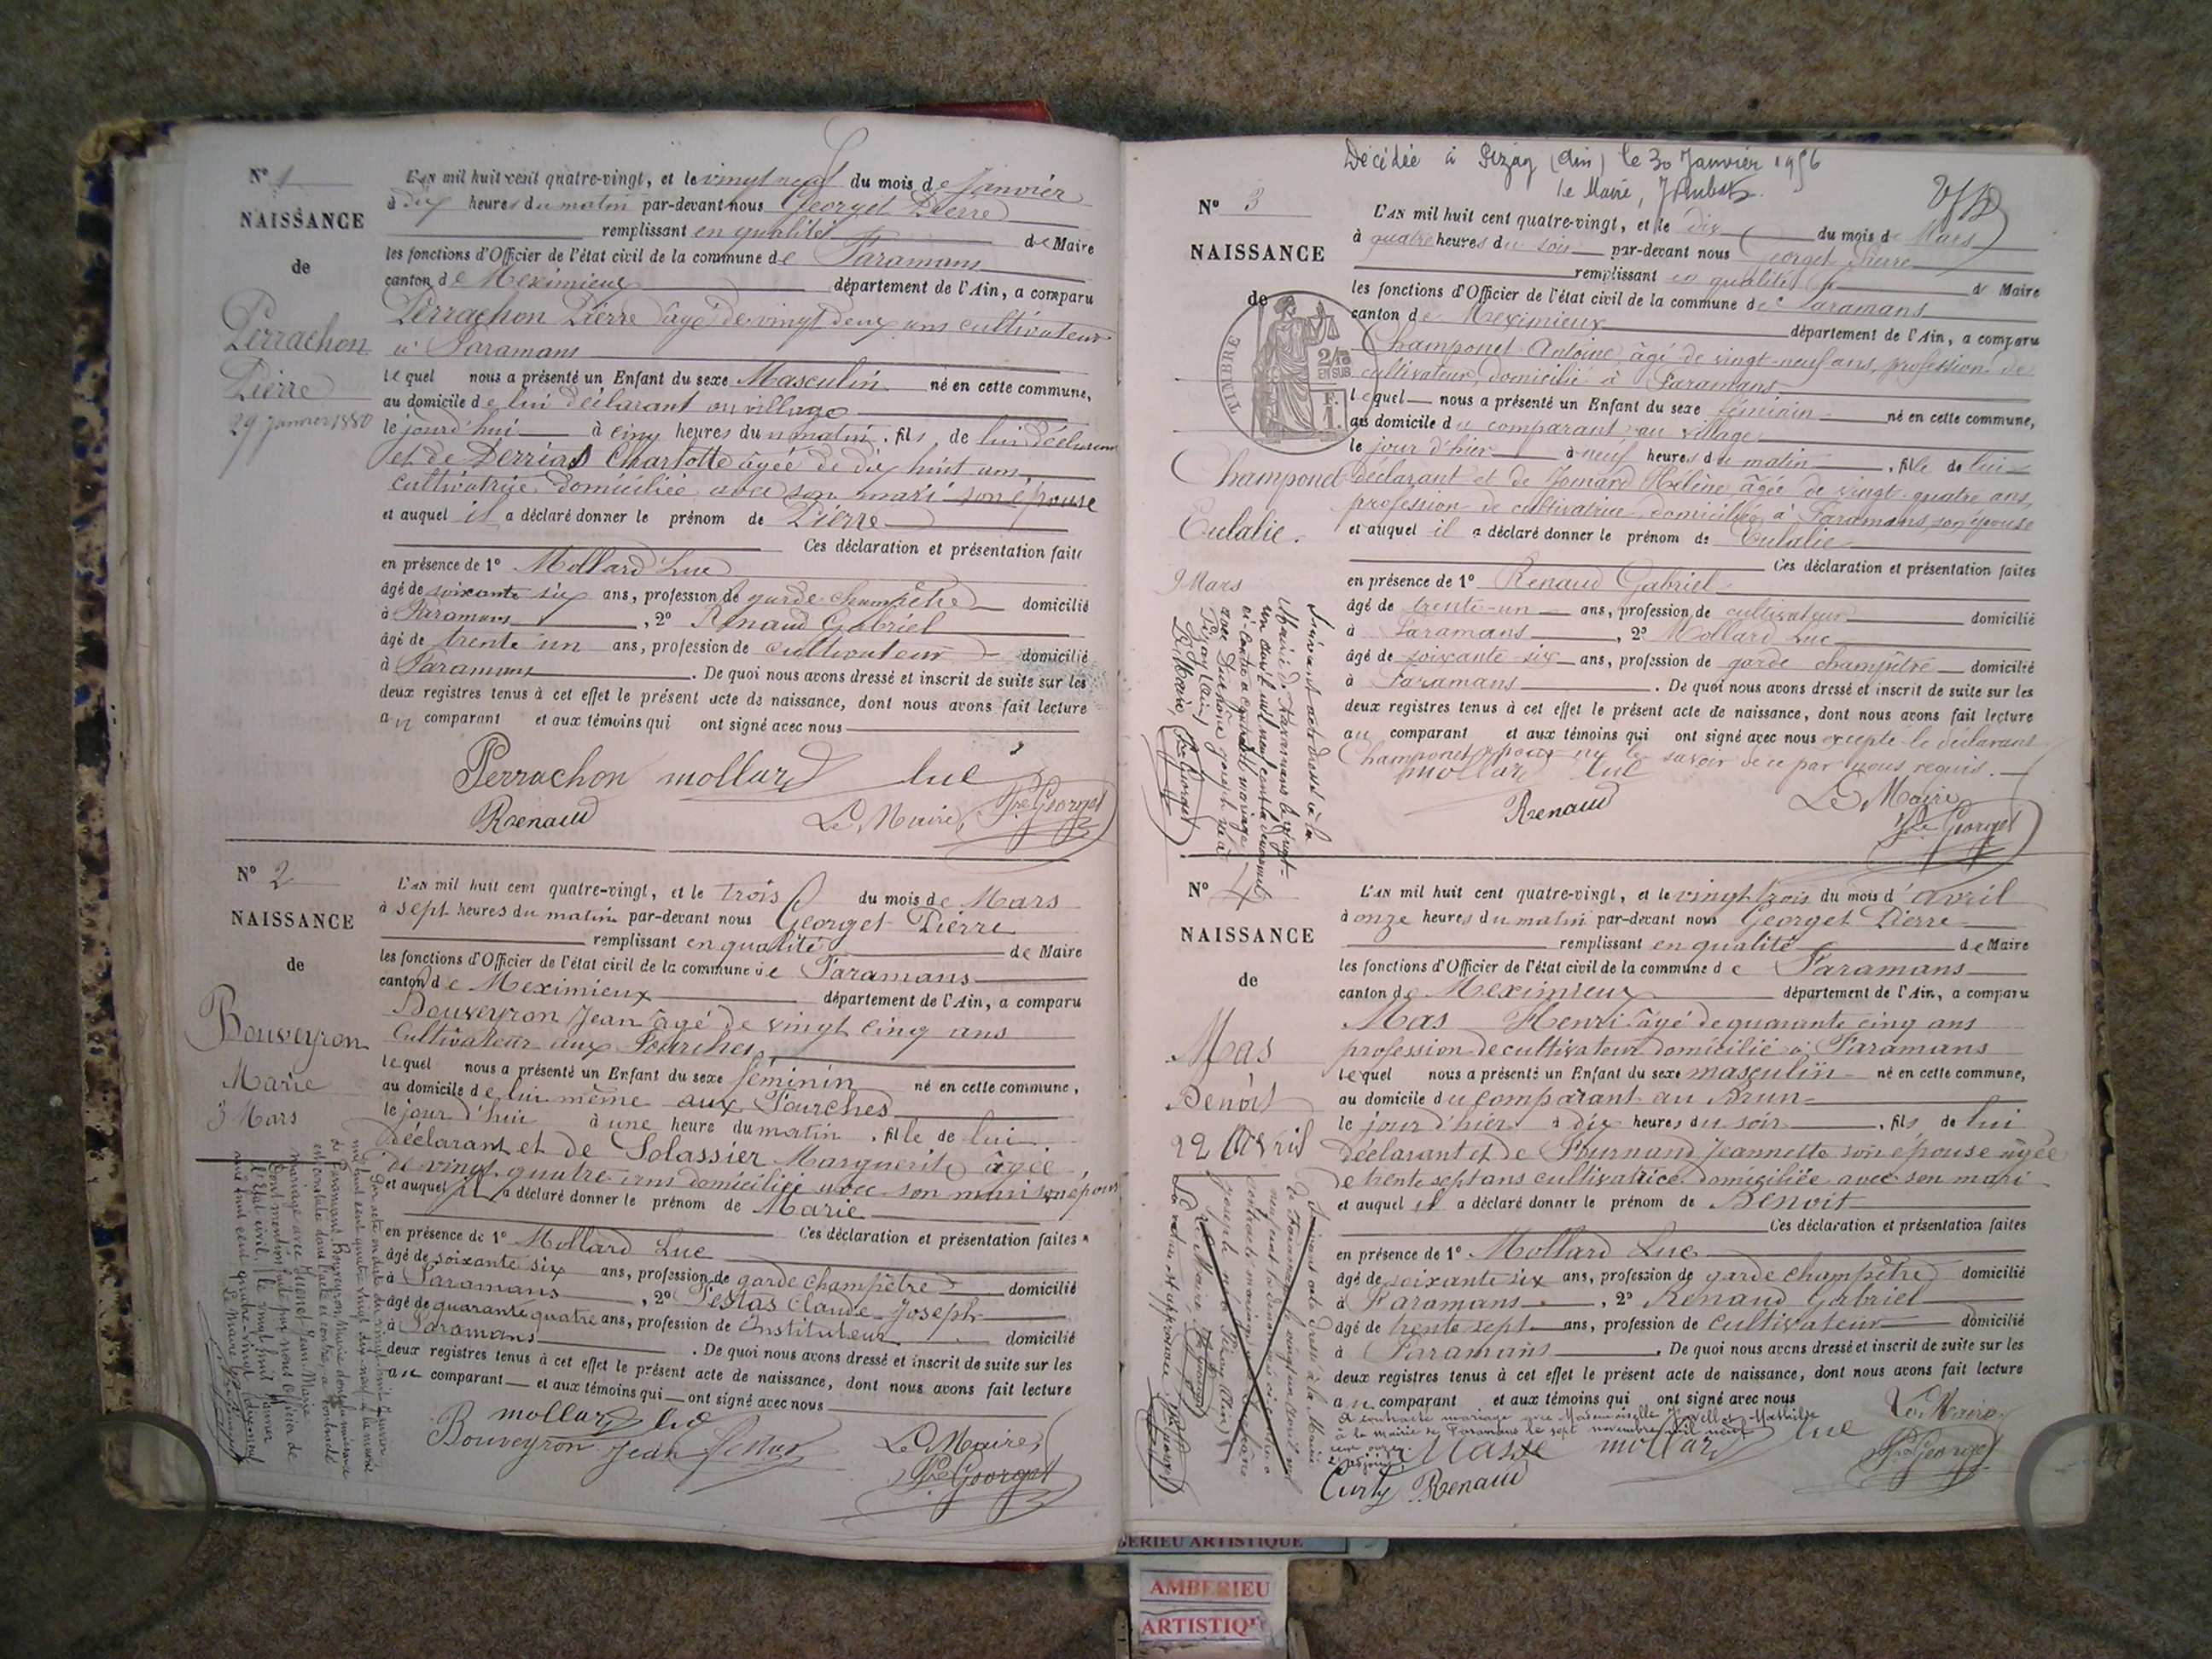 N° 1
NAISSANCE
de
Perrachon
Pierre
29 Janvier 1880
L'AN mil huit cent quatre-vingt, et le vingt neuf du mois de Janvier
à dix heures du matin par-devant nous Georget Pierre
remplissant en qualité de Maire
les fonctions d'Officier de l'état civil de la commune de Faramans
canton de Meximieux département de l'Ain, a comparu
Perrachon Pierre âgé de vingt deux ans cultivateur
à Faramans
lequel nous a présenté un Enfant du sexe Masculin né en cette commune,
au domicile de lui déclarant au village
le jourd'hui à cinq heures du matin, fils de lui déclarant
et de Derrias Charlotte âgée de dix huit ans
cultivatrice domiciliée avec son mari son épouse
et auquel il a déclaré donner le prénom de Pierre
Ces déclaration et présentation faites
en présence de 1° Mollard Luc
âgé de soixante six ans, profession de garde-champêtre domicilié
à Faramans, 2° Renaud Gabriel
âgé de trente un ans, profession de cultivateur domicilié
à Faramans. De quoi nous avons dressé et inscrit de suite sur les
deux registres tenus à cet effet le présent acte de naissance, dont nous avons fait lecture
au comparant et aux témoins qui ont signé avec nous
Perrachon mollard luc
Renaud Le Maire, Pre Georget
N° 2
NAISSANCE
de
Bouveyron
Marie
3 Mars
L'AN mil huit cent quatre-vingt, et le trois du mois de Mars
à sept heures du matin par-devant nous Georget Pierre
remplissant en qualité de Maire
les fonctions d'Officier de l'état civil de la commune de Faramans
canton de Meximieux département de l'Ain, a comparu
Bouveyron Jean âgé de vingt cinq ans
Cultivateur aux Fourches
lequel nous a présenté un Enfant du sexe féminin né en cette commune,
au domicile de lui même aux Fourches
le jour d'hui à une heure du matin, fille de lui
déclarant et de Solassier Marguerite âgée
de vingt quatre ans domiciliée avec son mari son épouse
et auquel il a déclaré donner le prénom de Marie
Ces déclaration et présentation faites
en présence de 1° Mollard Luc
âgé de soixante six ans, profession de garde champêtre domicilié
à Faramans, 2° Testas Claude-Joseph
âgé de quarante quatre ans, profession de Instituteur domicilié
à Faramans. De quoi nous avons dressé et inscrit de suite sur les
deux registres tenus à cet effet le présent acte de naissance, dont nous avons fait lecture
au comparant et aux témoins qui ont signé avec nous
mollard luc
Bouveyron Jean Testas Le Maire,
Pre Georget
Décédée à Pizay (Ain) le 30 Janvier 1956
Le Maire,
N° 3
NAISSANCE
de
TIMBRE
2/10
EN SUS
F.
1.
Champonet
Eulalie.
9 Mars
L'AN mil huit cent quatre-vingt, et le dix du mois de Mars
à quatre heures du soir par-devant nous Georget Pierre
remplissant en qualité de Maire
les fonctions d'Officier de l'état civil de la commune de Faramans
canton de Meximieux département de l'Ain, a comparu
Champonet Antoine, âgé de vingt-neuf ans, profession de
cultivateur, domicilié à Faramans
lequel nous a présenté un Enfant du sexe féminin né en cette commune,
au domicile du comparant au village
le jour d'hier à neuf heures du matin, fille de lui
déclarant et de Jomard Hélène, âgée de vingt-quatre ans,
profession de cultivatrice domiciliée à Faramans, son épouse
et auquel il a déclaré donner le prénom de Eulalie
Ces déclaration et présentation faites
en présence de 1° Renaud Gabriel
âgé de trente-un ans, profession de cultivateur domicilié
à Faramans, 2° Mollard Luc
âgé de soixante six ans, profession de garde champêtre domicilié
à Faramans. De quoi nous avons dressé et inscrit de suite sur les
deux registres tenus à cet effet le présent acte de naissance, dont nous avons fait lecture
au comparant et aux témoins qui ont signé avec nous excepté le déclarant
Champonet pour ne le savoir de ce par nous requis.
mollard luc
Renaud Le Maire,
Pre Georget
Suivant acte dressé à la
Mairie de Faramans le vingt-
N° 4
NAISSANCE
de
Mas
Benoît
22 Avril
L'AN mil huit cent quatre-vingt, et le vingt trois du mois d'avril
à onze heures du matin par-devant nous Georget Pierre
remplissant en qualité de Maire
les fonctions d'Officier de l'état civil de la commune de Faramans
canton de Meximieux département de l'Ain, a comparu
Mas Henri âgé de quarante cinq ans
profession de cultivateur domicilié à Faramans
lequel nous a présenté un Enfant du sexe masculin né en cette commune,
au domicile du comparant au Brun
le jour d'hier à dix heures du soir, fils de lui
déclarant et de Fournand Jeannette son épouse âgée
de trente sept ans cultivatrice domiciliée avec son mari
et auquel il a déclaré donner le prénom de Benoît
Ces déclaration et présentation faites
en présence de 1° Mollard Luc
âgé de soixante six ans, profession de garde champêtre domicilié
à Faramans, 2° Renaud Gabriel
âgé de trente sept ans, profession de cultivateur domicilié
à Faramans. De quoi nous avons dressé et inscrit de suite sur les
deux registres tenus à cet effet le présent acte de naissance, dont nous avons fait lecture
au comparant et aux témoins qui ont signé avec nous
A contracté mariage avec Mademoiselle Mathilde
à la mairie de Faramans le sept novembre mil neuf
cent onze.
Masse mollard luc Le Maire
Renaud Pre Georget
AMBERIEU ARTISTIQUE
AMBERIEU
ARTISTIQUE